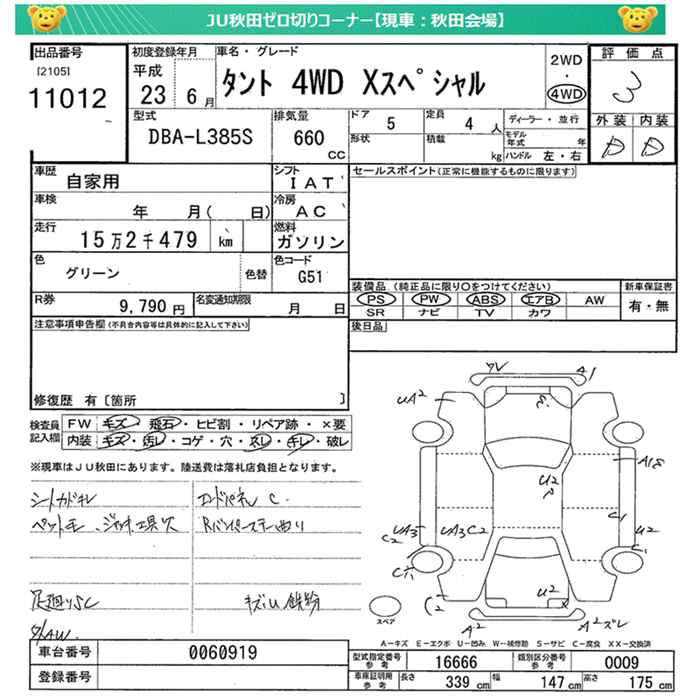 JU秋田ゼロ切りコーナー【現車：秋田会場】
出品番号
[2105]
11012
初度登録年月
平成
23 6月
車名・グレード
タント 4WD Xスペシャル
2WD
・
4WD
評価点
3
外装 内装
D D
型式
DBA-L385S
排気量
660
CC
ドア 5
定員 4 人
形状
積載 kg
ディーラー・並行
モデル年式 年
ハンドル 左・右
車歴 自家用
シフト IAT
車検 年 月( 日)
冷房 AC
走行 15万2千479 km
燃料 ガソリン
色 グリーン 色替
色コード G51
R券 9,790 円
名変通知期限 月 日
セールスポイント(正常に機能するものに限ります)
装備品 (純正品に限り○をつけてください)
PS PW ABS エアB AW
SR ナビ TV カワ
新車保証書
有・無
後日品
注意事項申告欄(不具合内容等は具体的に記入して下さい)
修復歴 有 [箇所 ]
検査員記入欄
FW キズ・飛石・ヒビ割・リペア跡・×要
内装 キズ・汚レ・コゲ・穴・スレ・キレ・破レ
※現車はJU秋田にあります。陸送費は落札店負担となります。
ペット毛、ジャッキ工具欠
足廻りSC
キズU 鉄粉
外AW
UA2
A1
U2
UA3
C2
UA3C2
C1
U2
C1
C2
U2
A2
A2ズレ
スペア
A－キズ E－エクボ U－凹み W－補修跡 S－サビ C－腐食 XX－交換済
車台番号 0060919
登録番号
型式指定番号 参考 16666
類別区分番号 参考 0009
車庫証明用 参考 長さ 339 cm 幅 147 cm 高さ 175 cm